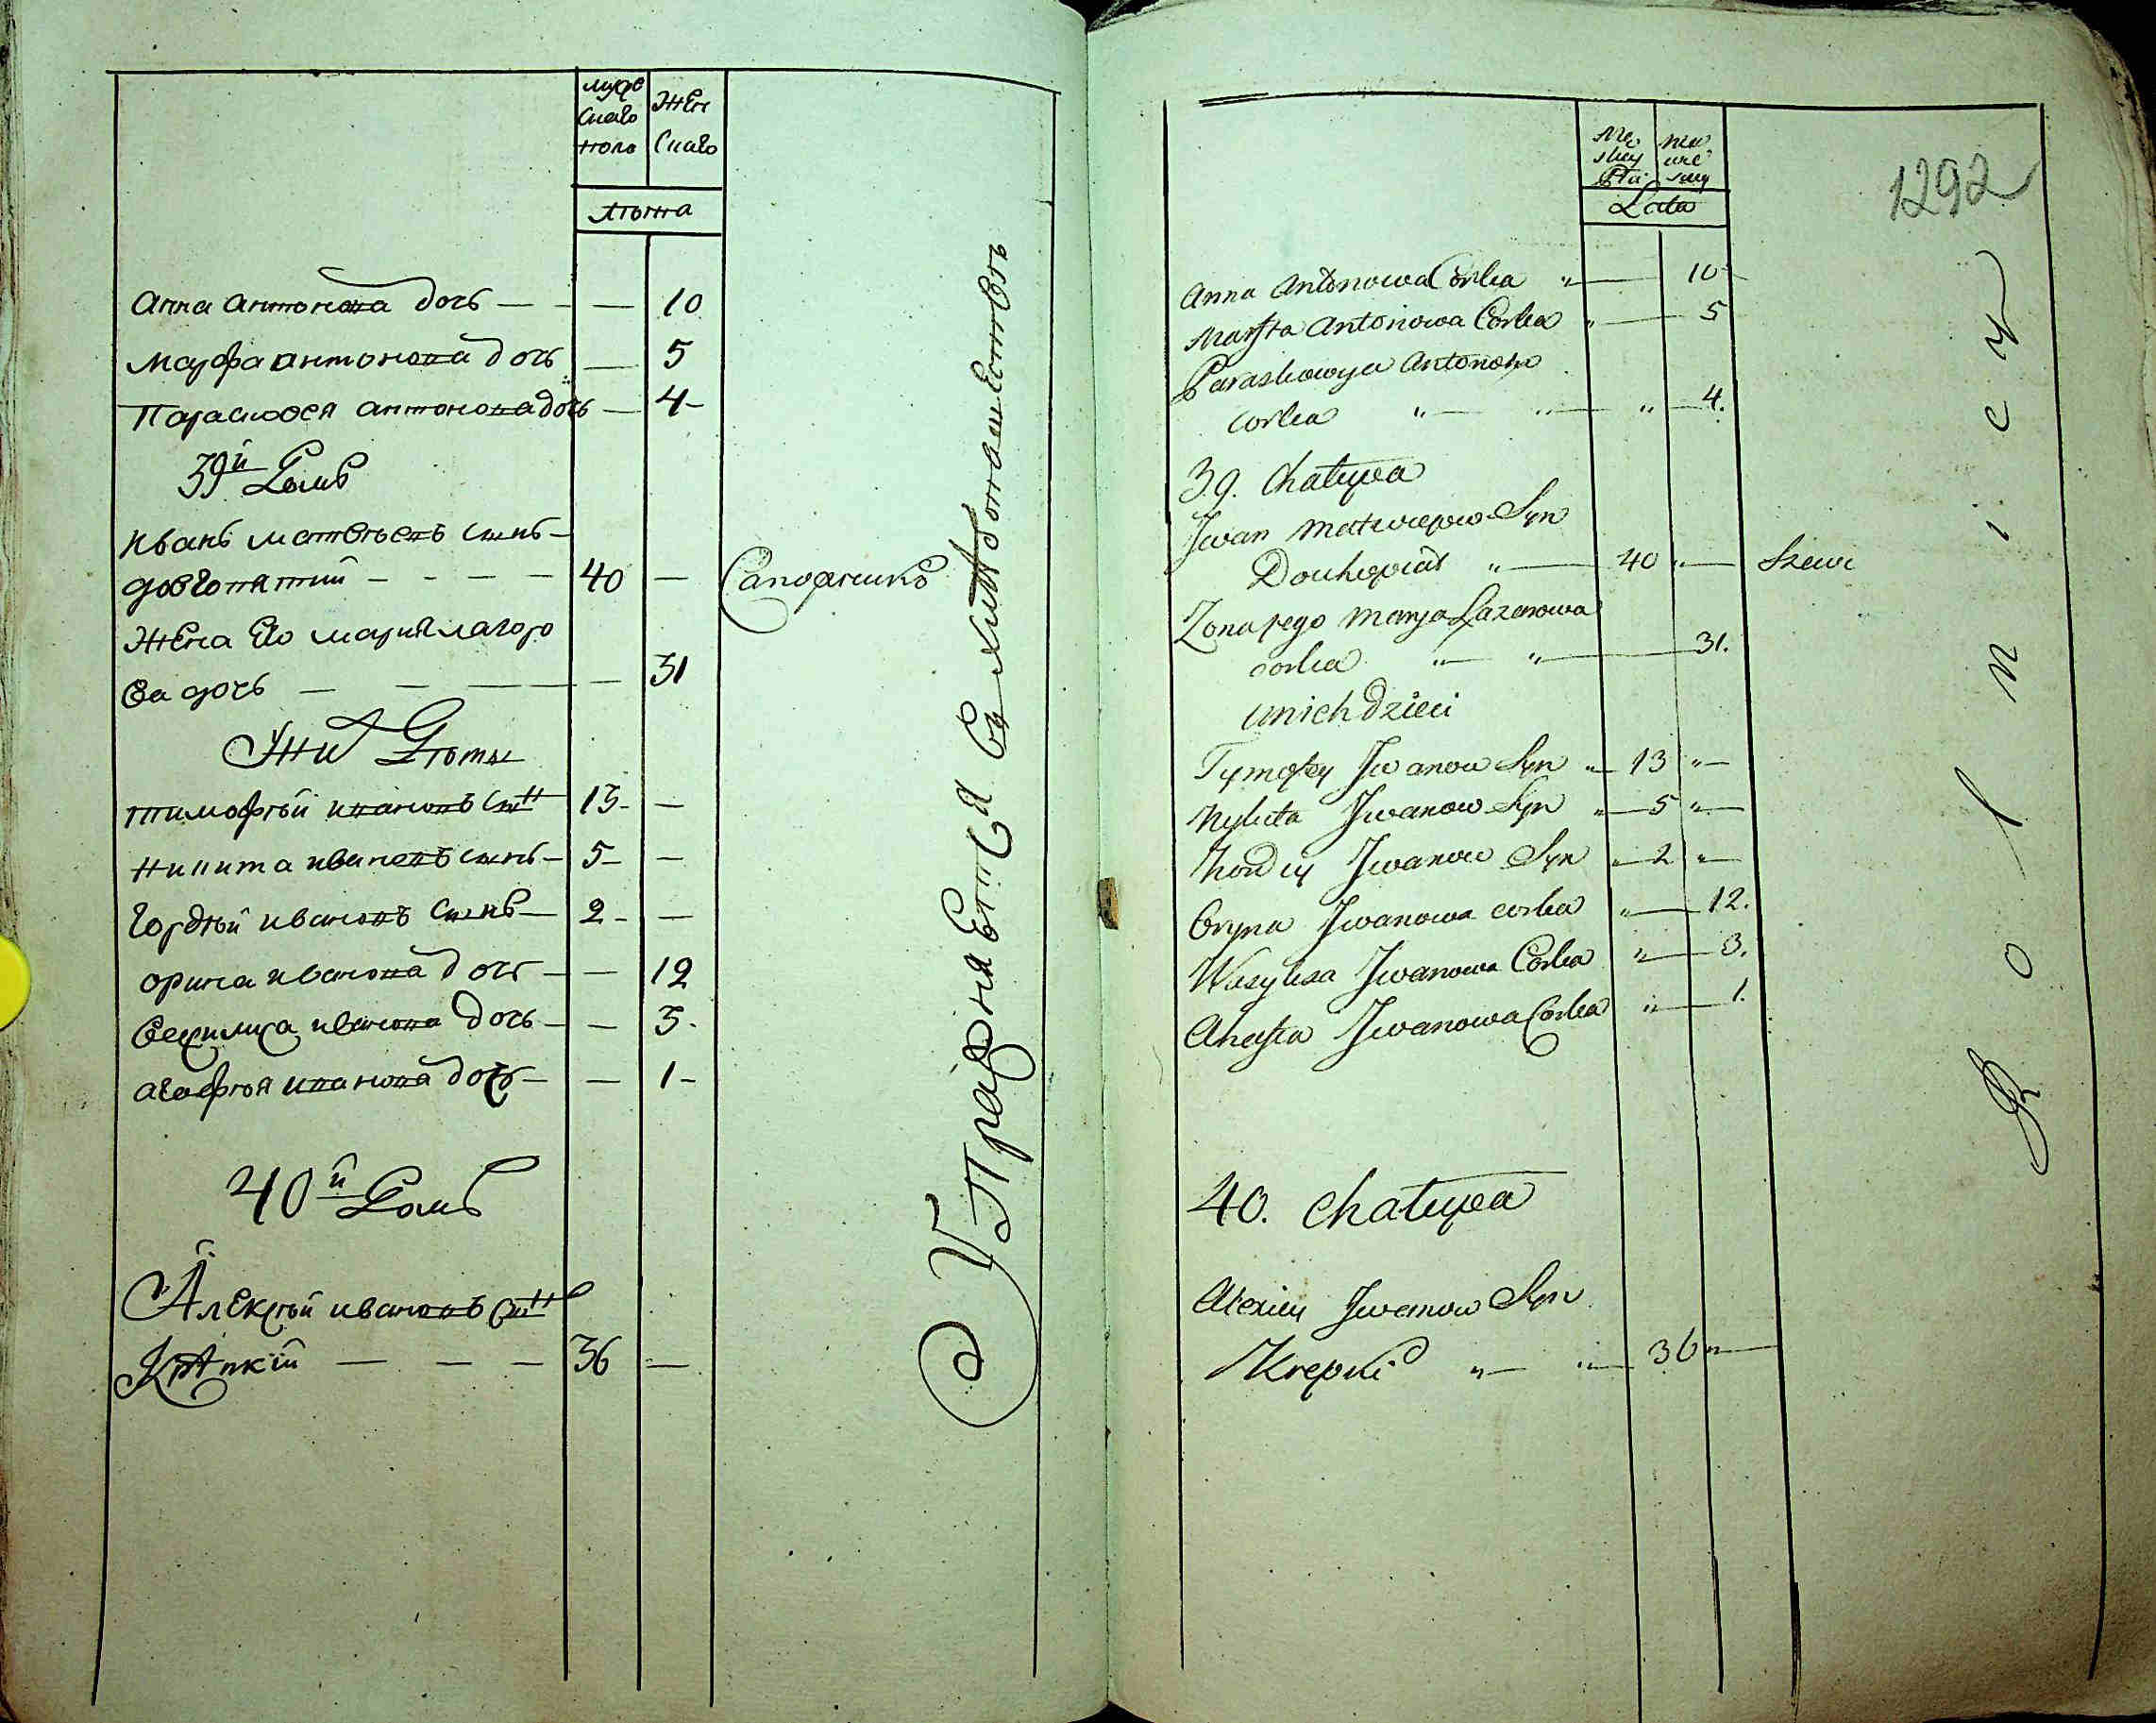 муже
скаго
полъ
жен
скаго
лѣта
Анна антонова дочь — — — 10
Марфа антонова дочь — 5
Параскосея антонова дочь — 4
39й Домъ
Иванъ матвѣевъ сынъ —
довгопятий — — — — 40 — Сапожникъ
Жена Его марія лазоро
ва дочь — — — — 31
У Них Дѣты
тимофѣй ивановъ сынъ 13 —
никита ивановъ сынъ — 5 —
гордѣй ивановъ сынъ — 2 —
орина иванова дочь — — 12
Василиса иванова дочь — — 3
агафѣя иванова дочь — — 1
40й Домъ
Алексѣй ивановъ сынъ
Крѣпкій — — — 36 —
Упражняется въ хлѣбопашествѣ
Mę
skey
Płci
niew
wie
skey
Lata
1292
Anna Antonowa Corka „ — 10
Marfta Antonowa Corka „ — 5
Paraskowya Antonow
corka „ — „ — „ — 4.
39. Chatupa
Jwan Matwiejew Syn
Douhopiat „ — 40 „ — Szewc
Zona jego Marya Lazarowa
corka „ — „ — 31.
u nich dzieci
Tymofey Jwanow Syn „ — 13 „ —
Nykita Jwanow Syn „ — 5 „ —
Hordiy Jwanow Syn „ — 2 „ —
Oryna Jwanowa corka „ — 12.
Wasylisa Jwanowa Corka „ — 3.
Ahafta Jwanowa Corka „ — 1.
40. Chatupa
Alexiey Jwanow Syn
Krepki „ — „ — 36 „ —
Rolnicy